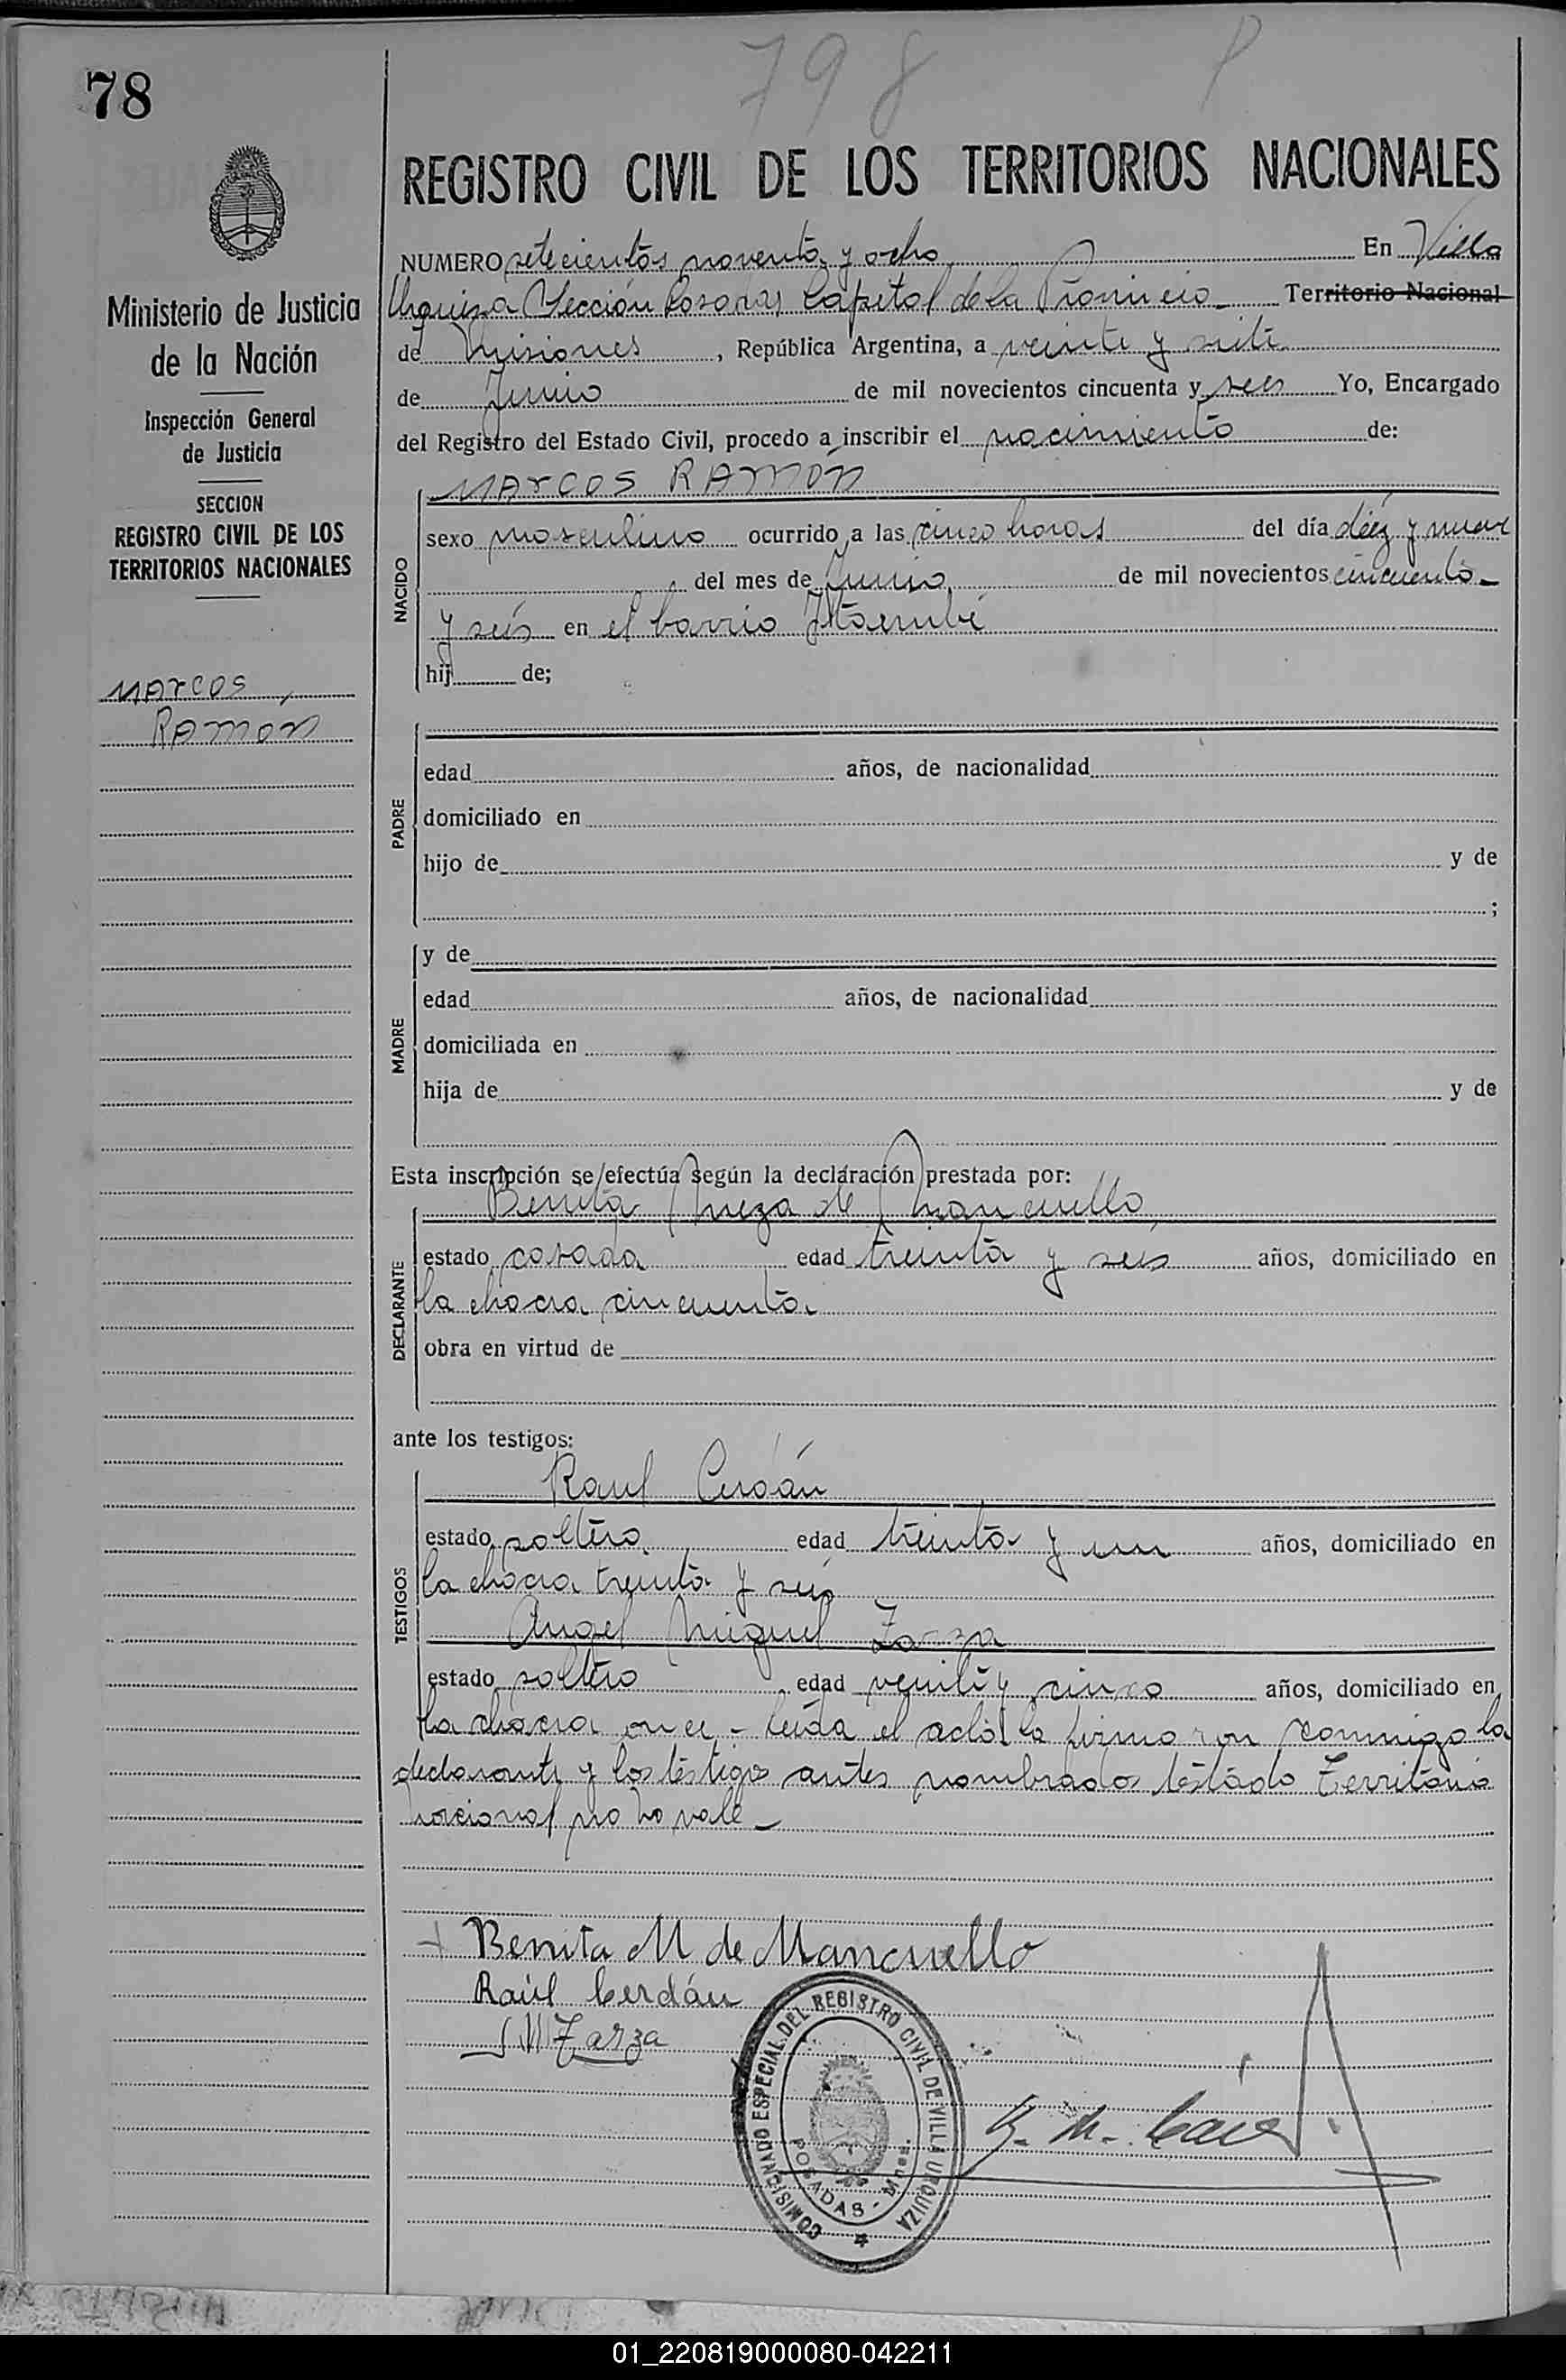 798 P
78
REGISTRO CIVIL DE LOS TERRITORIOS NACIONALES
Ministerio de Justicia
de la Nación
Inspección General
de Justicia
SECCION
REGISTRO CIVIL DE LOS
TERRITORIOS NACIONALES
MArcos
RAmón
NUMERO setecientos noventa y ocho En Villa
Urquiza Sección Posadas Capital de la Provincia Territorio Nacional
de Misiones, República Argentina, a veinte y siete
de Junio de mil novecientos cincuenta y seis Yo, Encargado
del Registro del Estado Civil, procedo a inscribir el nacimiento de:
MArcos RAmón
NACIDO
sexo masculino ocurrido a las cinco horas del día diez y nueve
del mes de Junio de mil novecientos cincuenta
y seis en el barrio Itaembé
hij de;
PADRE
edad años, de nacionalidad
domiciliado en
hijo de y de
;
MADRE
y de
edad años, de nacionalidad
domiciliada en
hija de y de
Esta inscripción se efectúa según la declaración prestada por:
Benita Meza de Mancuello
DECLARANTE
estado casada edad treinta y seis años, domiciliado en
la chacra cincuenta
obra en virtud de
ante los testigos:
Raul Cerdán
TESTIGOS
estado soltero edad treinta y un años, domiciliado en
la chacra treinta y seis
Angel Miguel Zarza
estado soltero edad veinte y cinco años, domiciliado en
la chacra once - leida el acta la firmaron conmigo la
declarante y los testigos antes nombrados testado Territorio
nacional no vale
Benita M de Mancuello
Raúl Cerdán
Zarza
COMISIONADO ESPECIAL DEL REGISTRO CIVIL DE VILLA URQUIZA
POSADAS - Mnes.
01_220819000080-042211